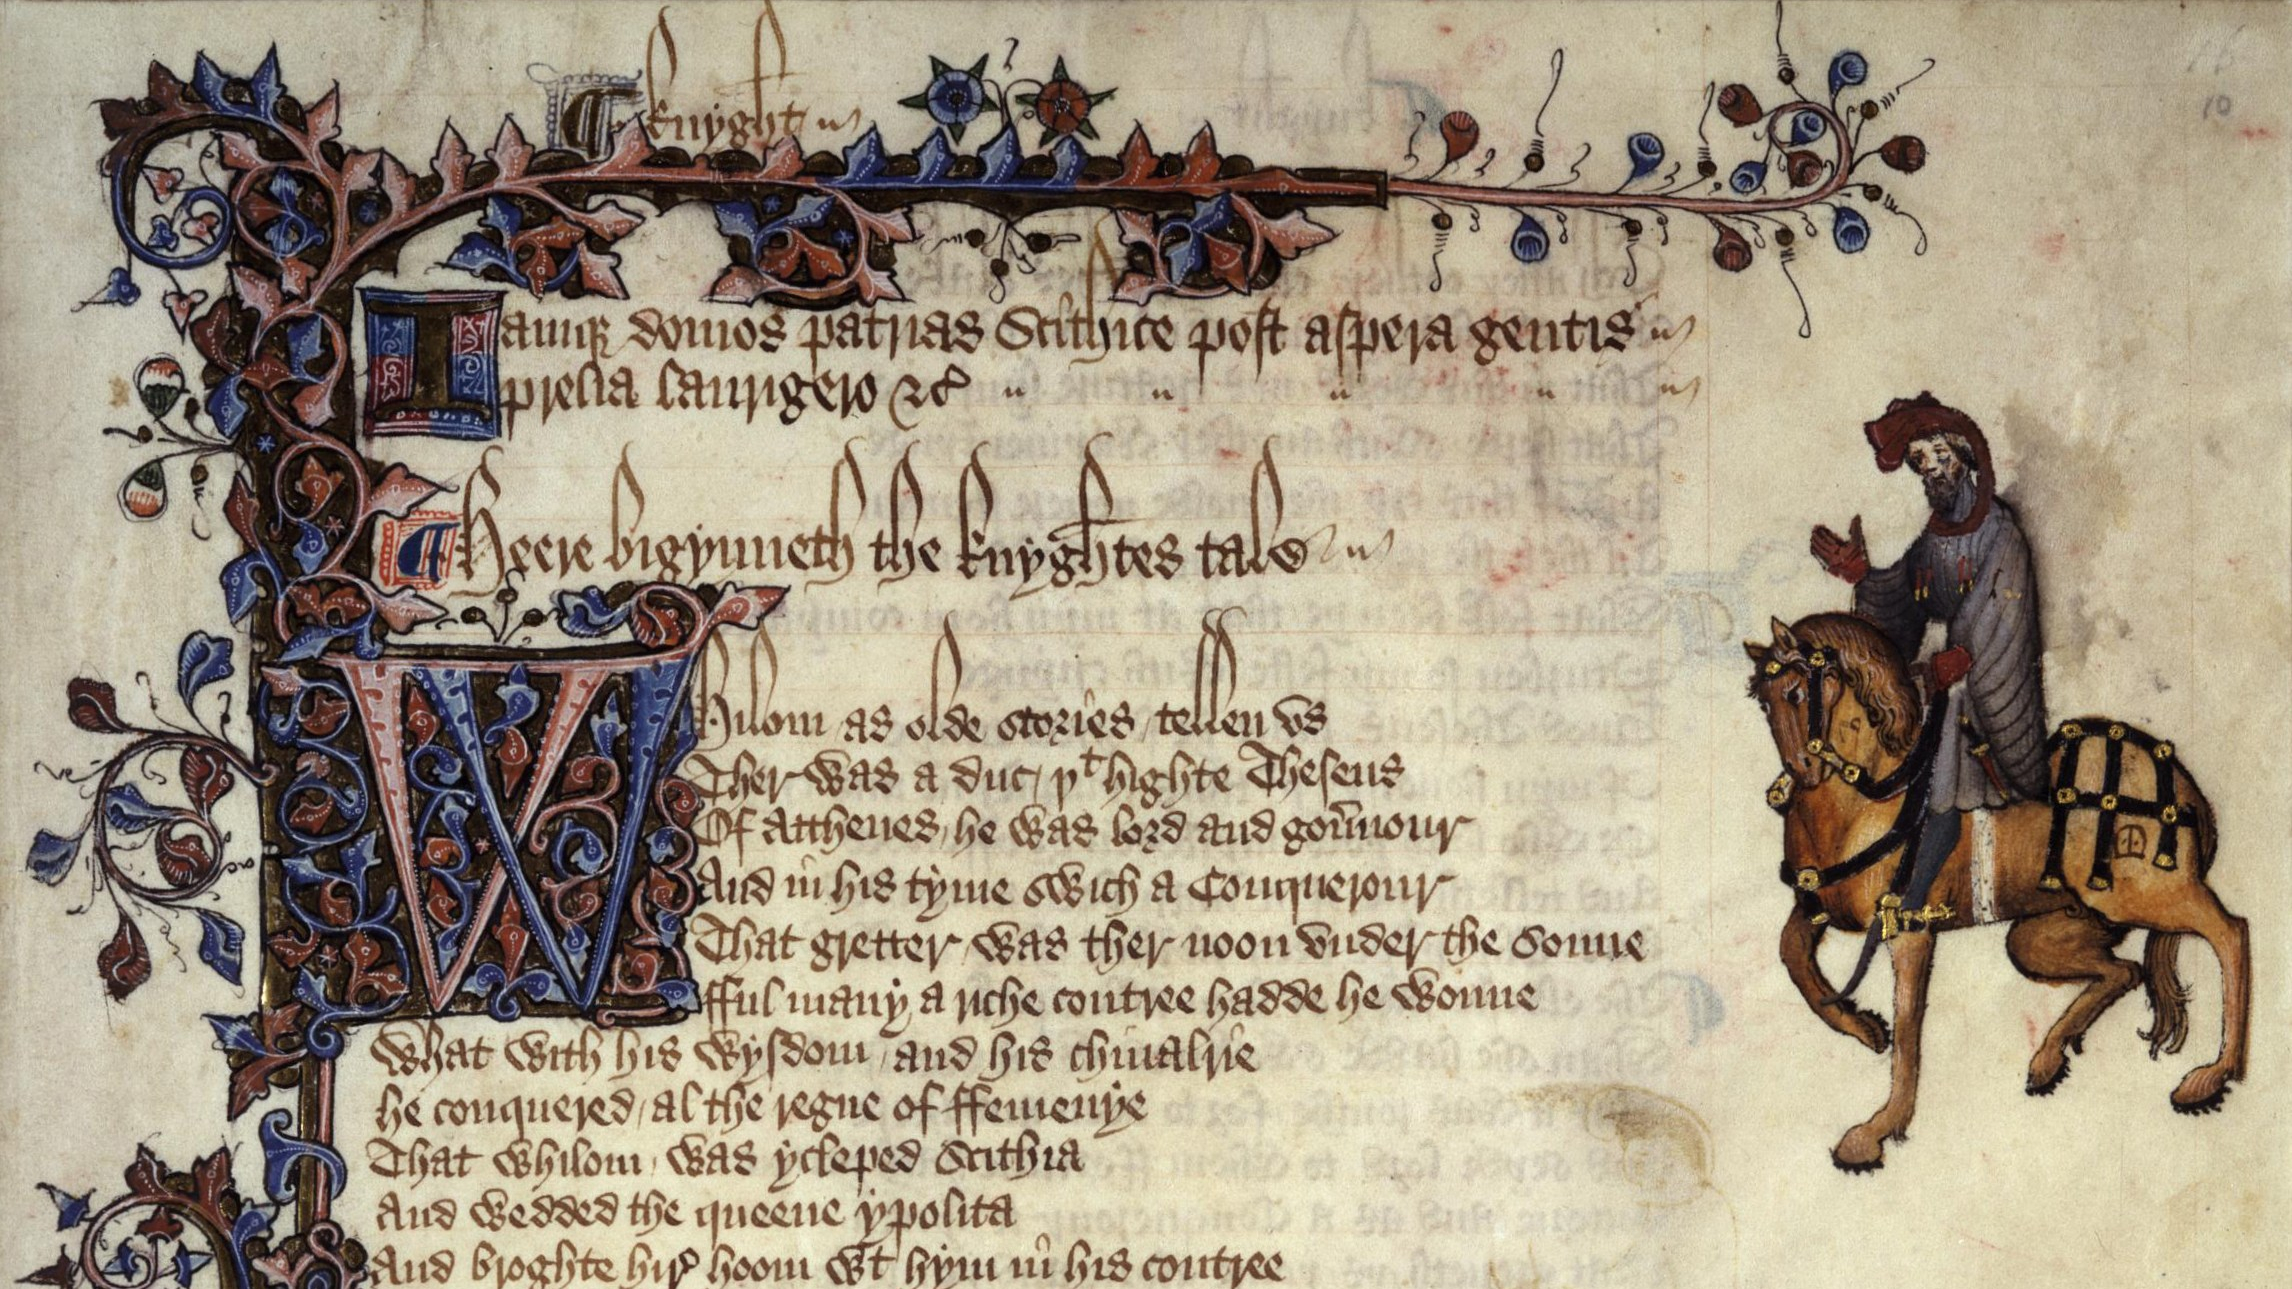 ¶ knyght
Iamq; domos patrias Scithice post aspera gentis
prelia laurigero &c
¶ Heere bigynneth the knyghtes tale
Whilom as olde stories / tellen vs
Ther was a duc / þt highte Theseus
Of Atthenes / he was lord and goủnour
And in his tyme swich a Conquerour
That gretter / was ther noon vnder the sonne
fful many a riche contree hadde he wonne
What with his wysdom / and his chiualrie
he conquered / al the regne of ffemenye
That whilom / was ycleped Scithia
And wedded the queene ypolita
And broghte hir̉ hoom wt hym in his contree
10